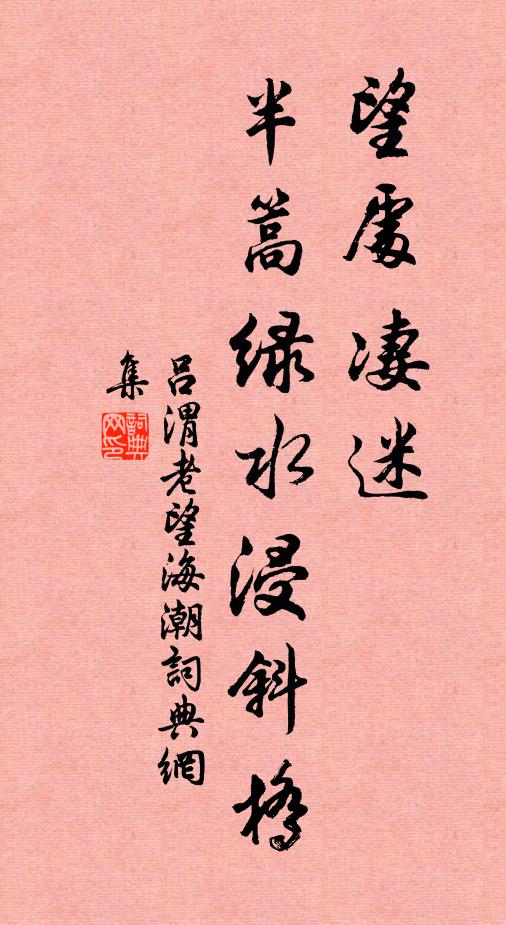 望處凄迷
半篙綠水浸斜橋
呂渭老望海潮詞典網
集
詞典
网印